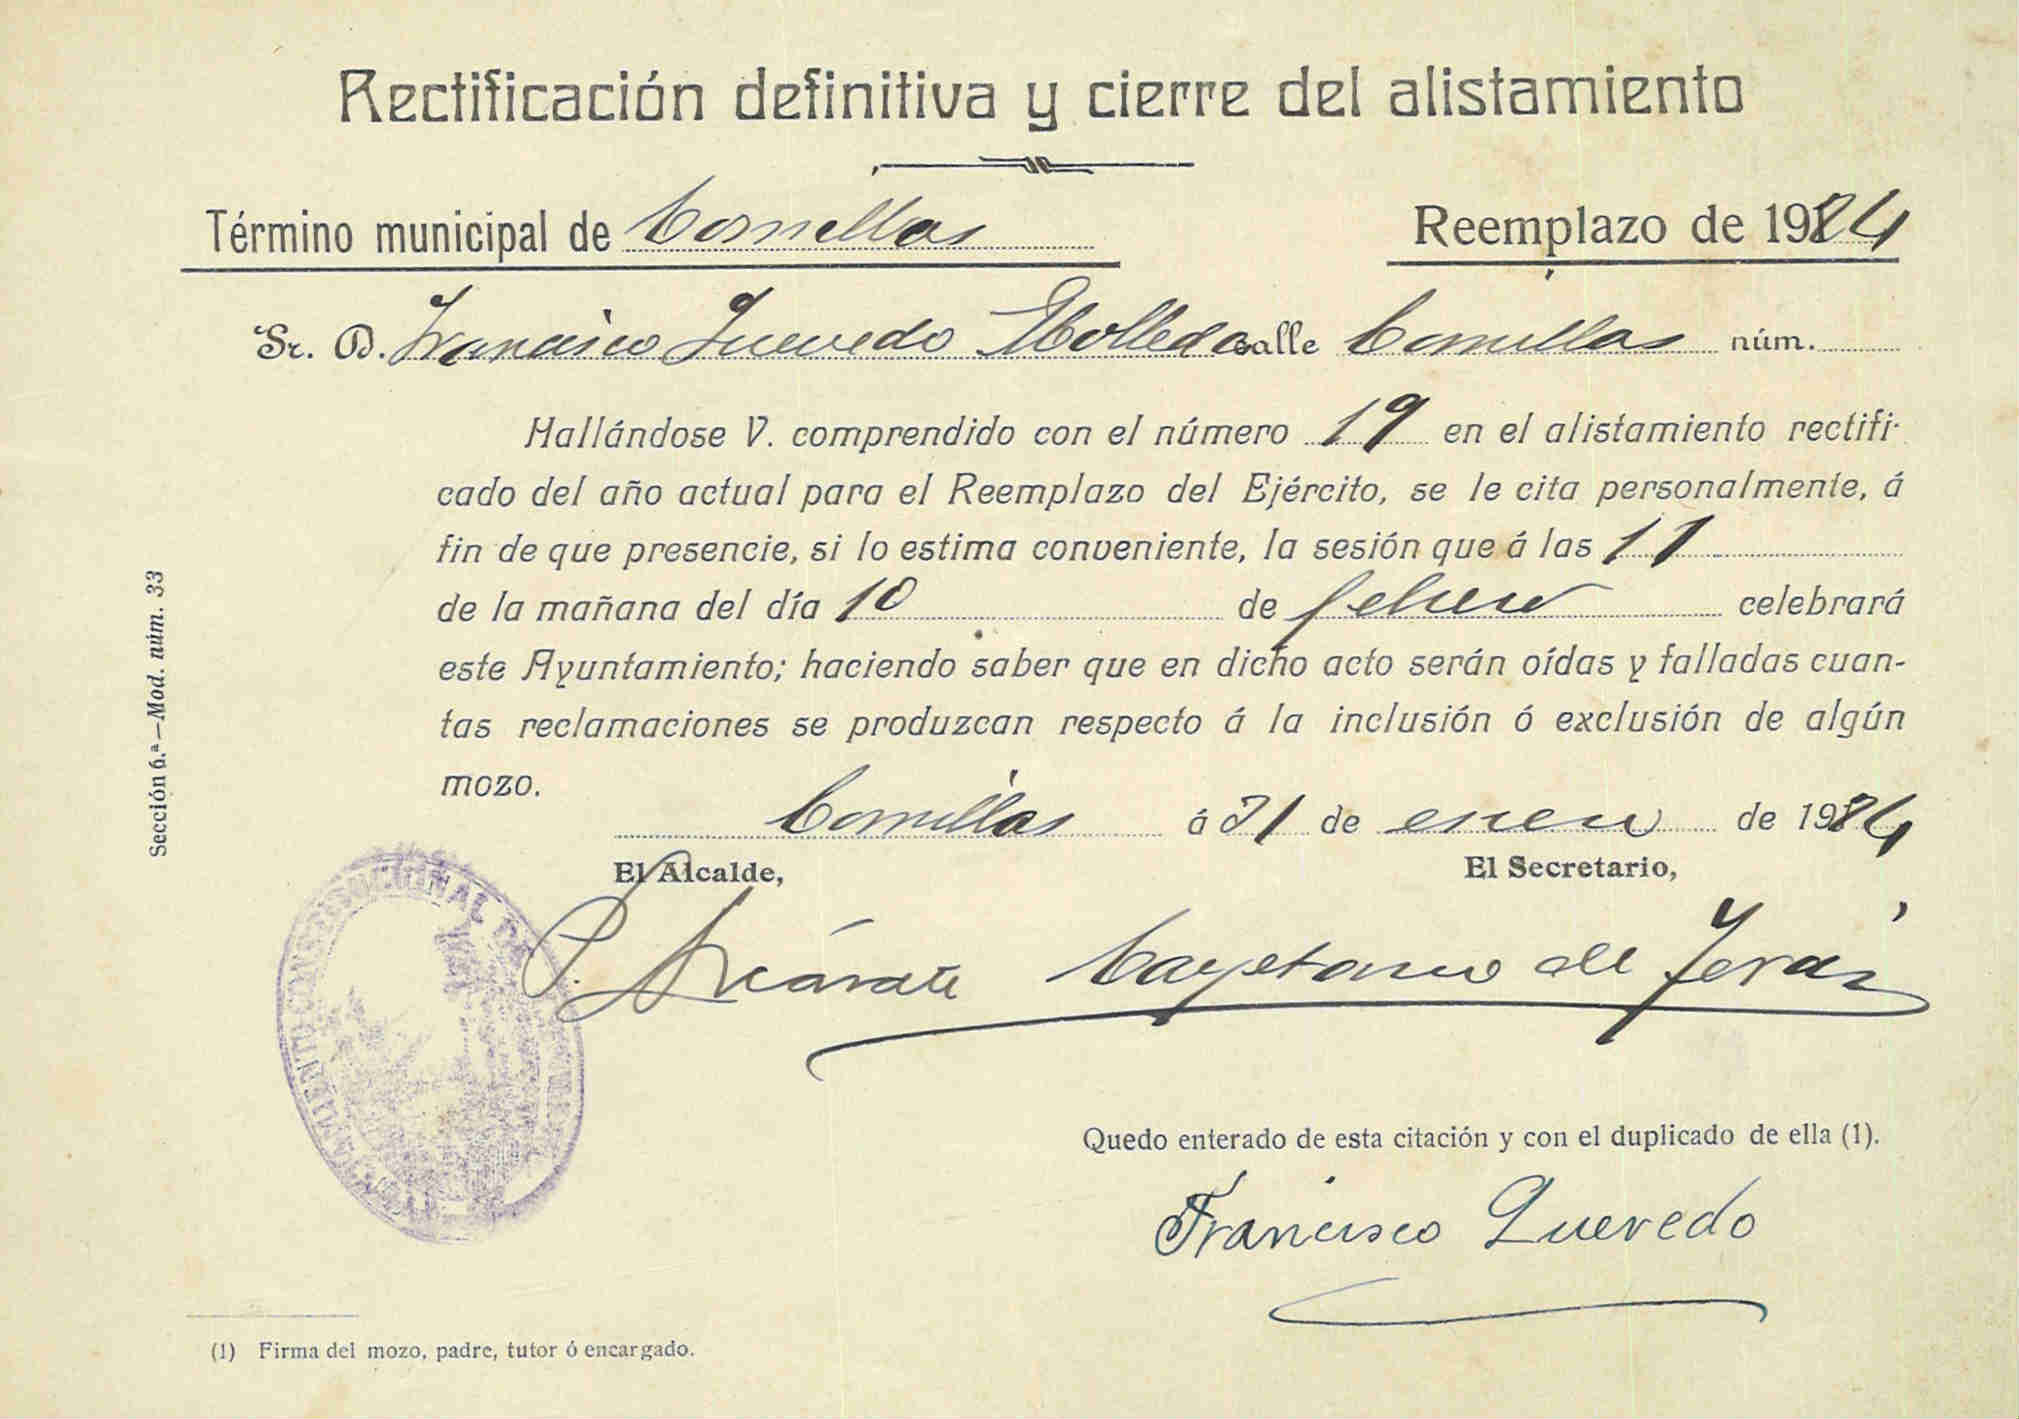 Rectificación definitiva y cierre del alistamiento
Término municipal de Comillas
Reemplazo de 1924
Sr. D. Francisco Quevedo Molleda calle Comillas núm.
Hallándose V. comprendido con el número 19 en el alistamiento rectifi-
cado del año actual para el Reemplazo del Ejército, se le cita personalmente, á
fin de que presencie, si lo estima conveniente, la sesión que á las 11
de la mañana del día 10 de febrero celebrará
este Ayuntamiento; haciendo saber que en dicho acto serán oídas y falladas cuan-
tas reclamaciones se produzcan respecto á la inclusión ó exclusión de algún
mozo.
Comillas á 31 de enero de 1924
El Alcalde,
El Secretario,
Cayetano de Terán
Quedo enterado de esta citación y con el duplicado de ella (1).
Francisco Quevedo
(1) Firma del mozo, padre, tutor ó encargado.
Sección 6.ª—Mod. núm. 33